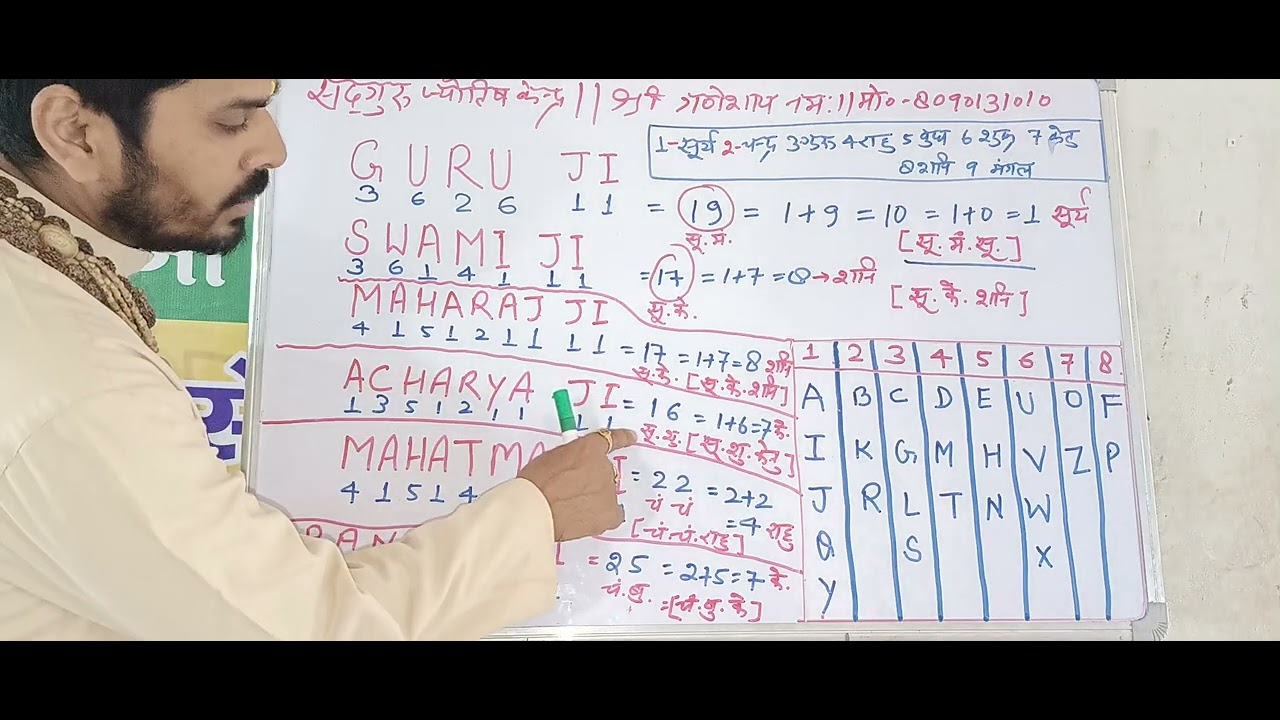 सदगुरु ज्योतिष केन्द्र || श्री गणेशाय नमः || मो०-8090131010
1-सूर्य 2-चन्द्र 3 गुरु 4 राहु 5 बुध 6 शुक्र 7 केतु
8 शनि 9 मंगल
GURU JI
3 6 2 6 1 1 = 19 = 1+9 = 10 = 1+0 = 1 सूर्य
सू. मं. [सू. मं. सू.]
SWAMI JI
3 6 1 4 1 1 1 = 17 = 1+7 = 8 → शनि
सू. के. [सू. के. शनि]
MAHARAJ JI
4 1 5 1 2 1 1 1 1 = 17 = 1+7 = 8 शनि
सू. के. [सू. के. शनि]
ACHARYA JI
1 3 5 1 2 1 1 1 1 = 16 = 1+6=7 के.
सू. शु. [सू. शु. केतु]
MAHATMA
4 1 5 1 4 = 22 = 2+2
चं चं = 4 राहु
[चं. चं. राहु]
= 25 = 2+5=7 के.
चं. बु. =[चं. बु. के]
1 2 3 4 5 6 7 8.
A B C D E U O F
I K G M H V Z P
J R L T N W
Q S X
Y